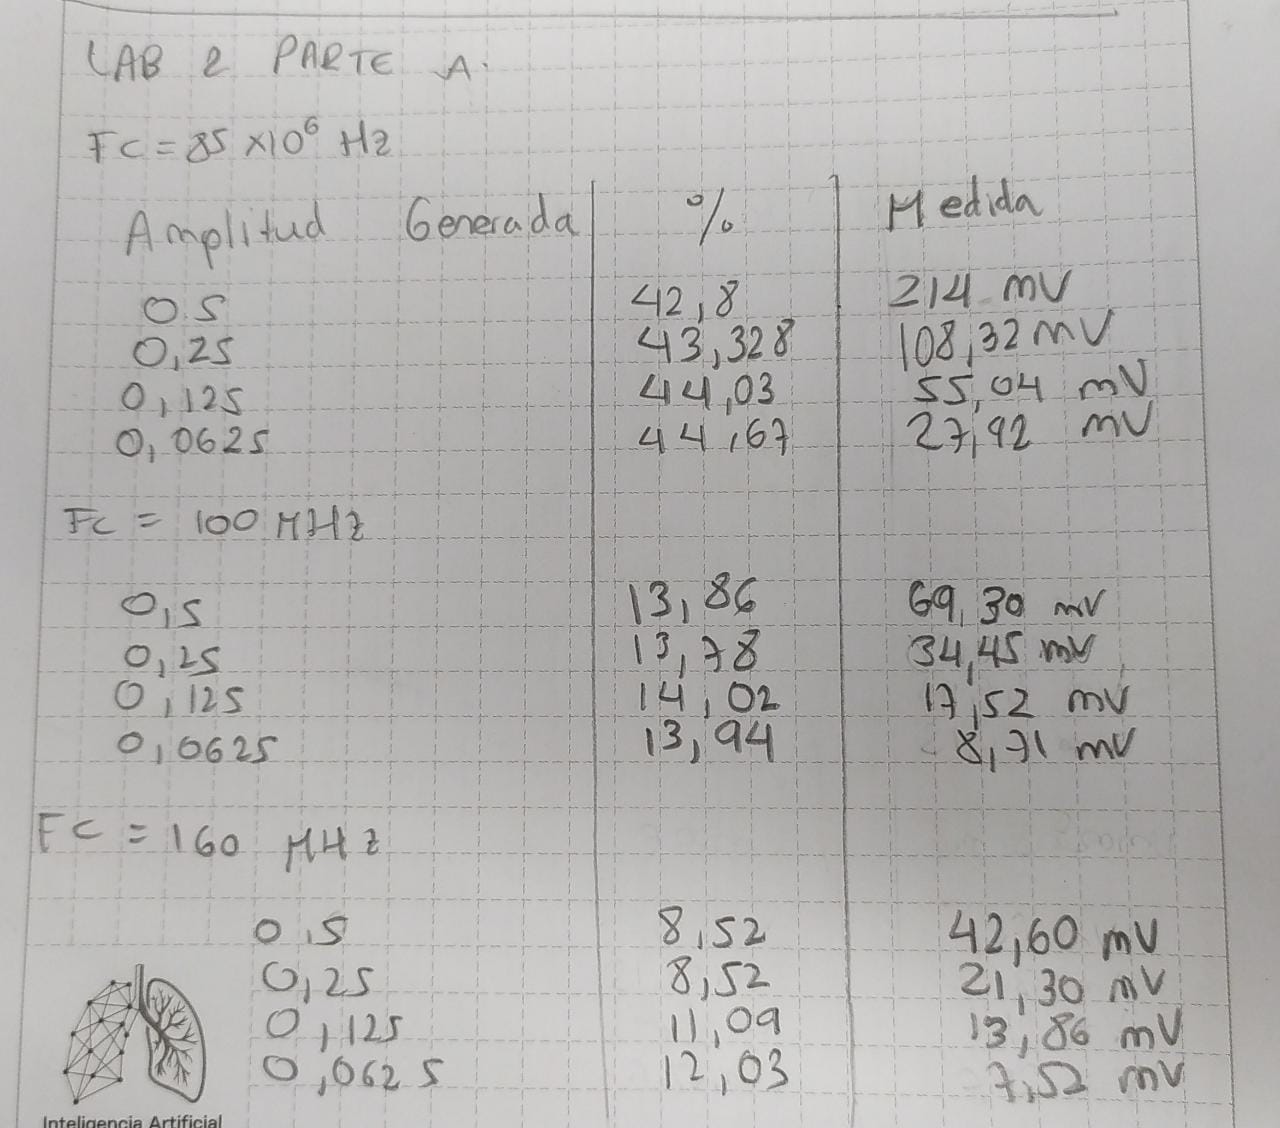 LAB 2 PARTE A.
FC = 85 x10⁶ Hz
Amplitud Generada % Medida
0.5 42,8 214 mV
0,25 43,328 108,32 mV
0,125 44,03 55,04 mV
0,0625 44,67 27,92 mV
FC = 100 MHz
0,5 13,86 69,30 mV
0,25 13,78 34,45 mV
0,125 14,02 17,52 mV
0,0625 13,94 8,71 mV
FC = 160 MHz
0,5 8,52 42,60 mV
0,25 8,52 21,30 mV
0,125 11,09 13,86 mV
0,0625 12,03 7,52 mV
Inteligencia Artificial